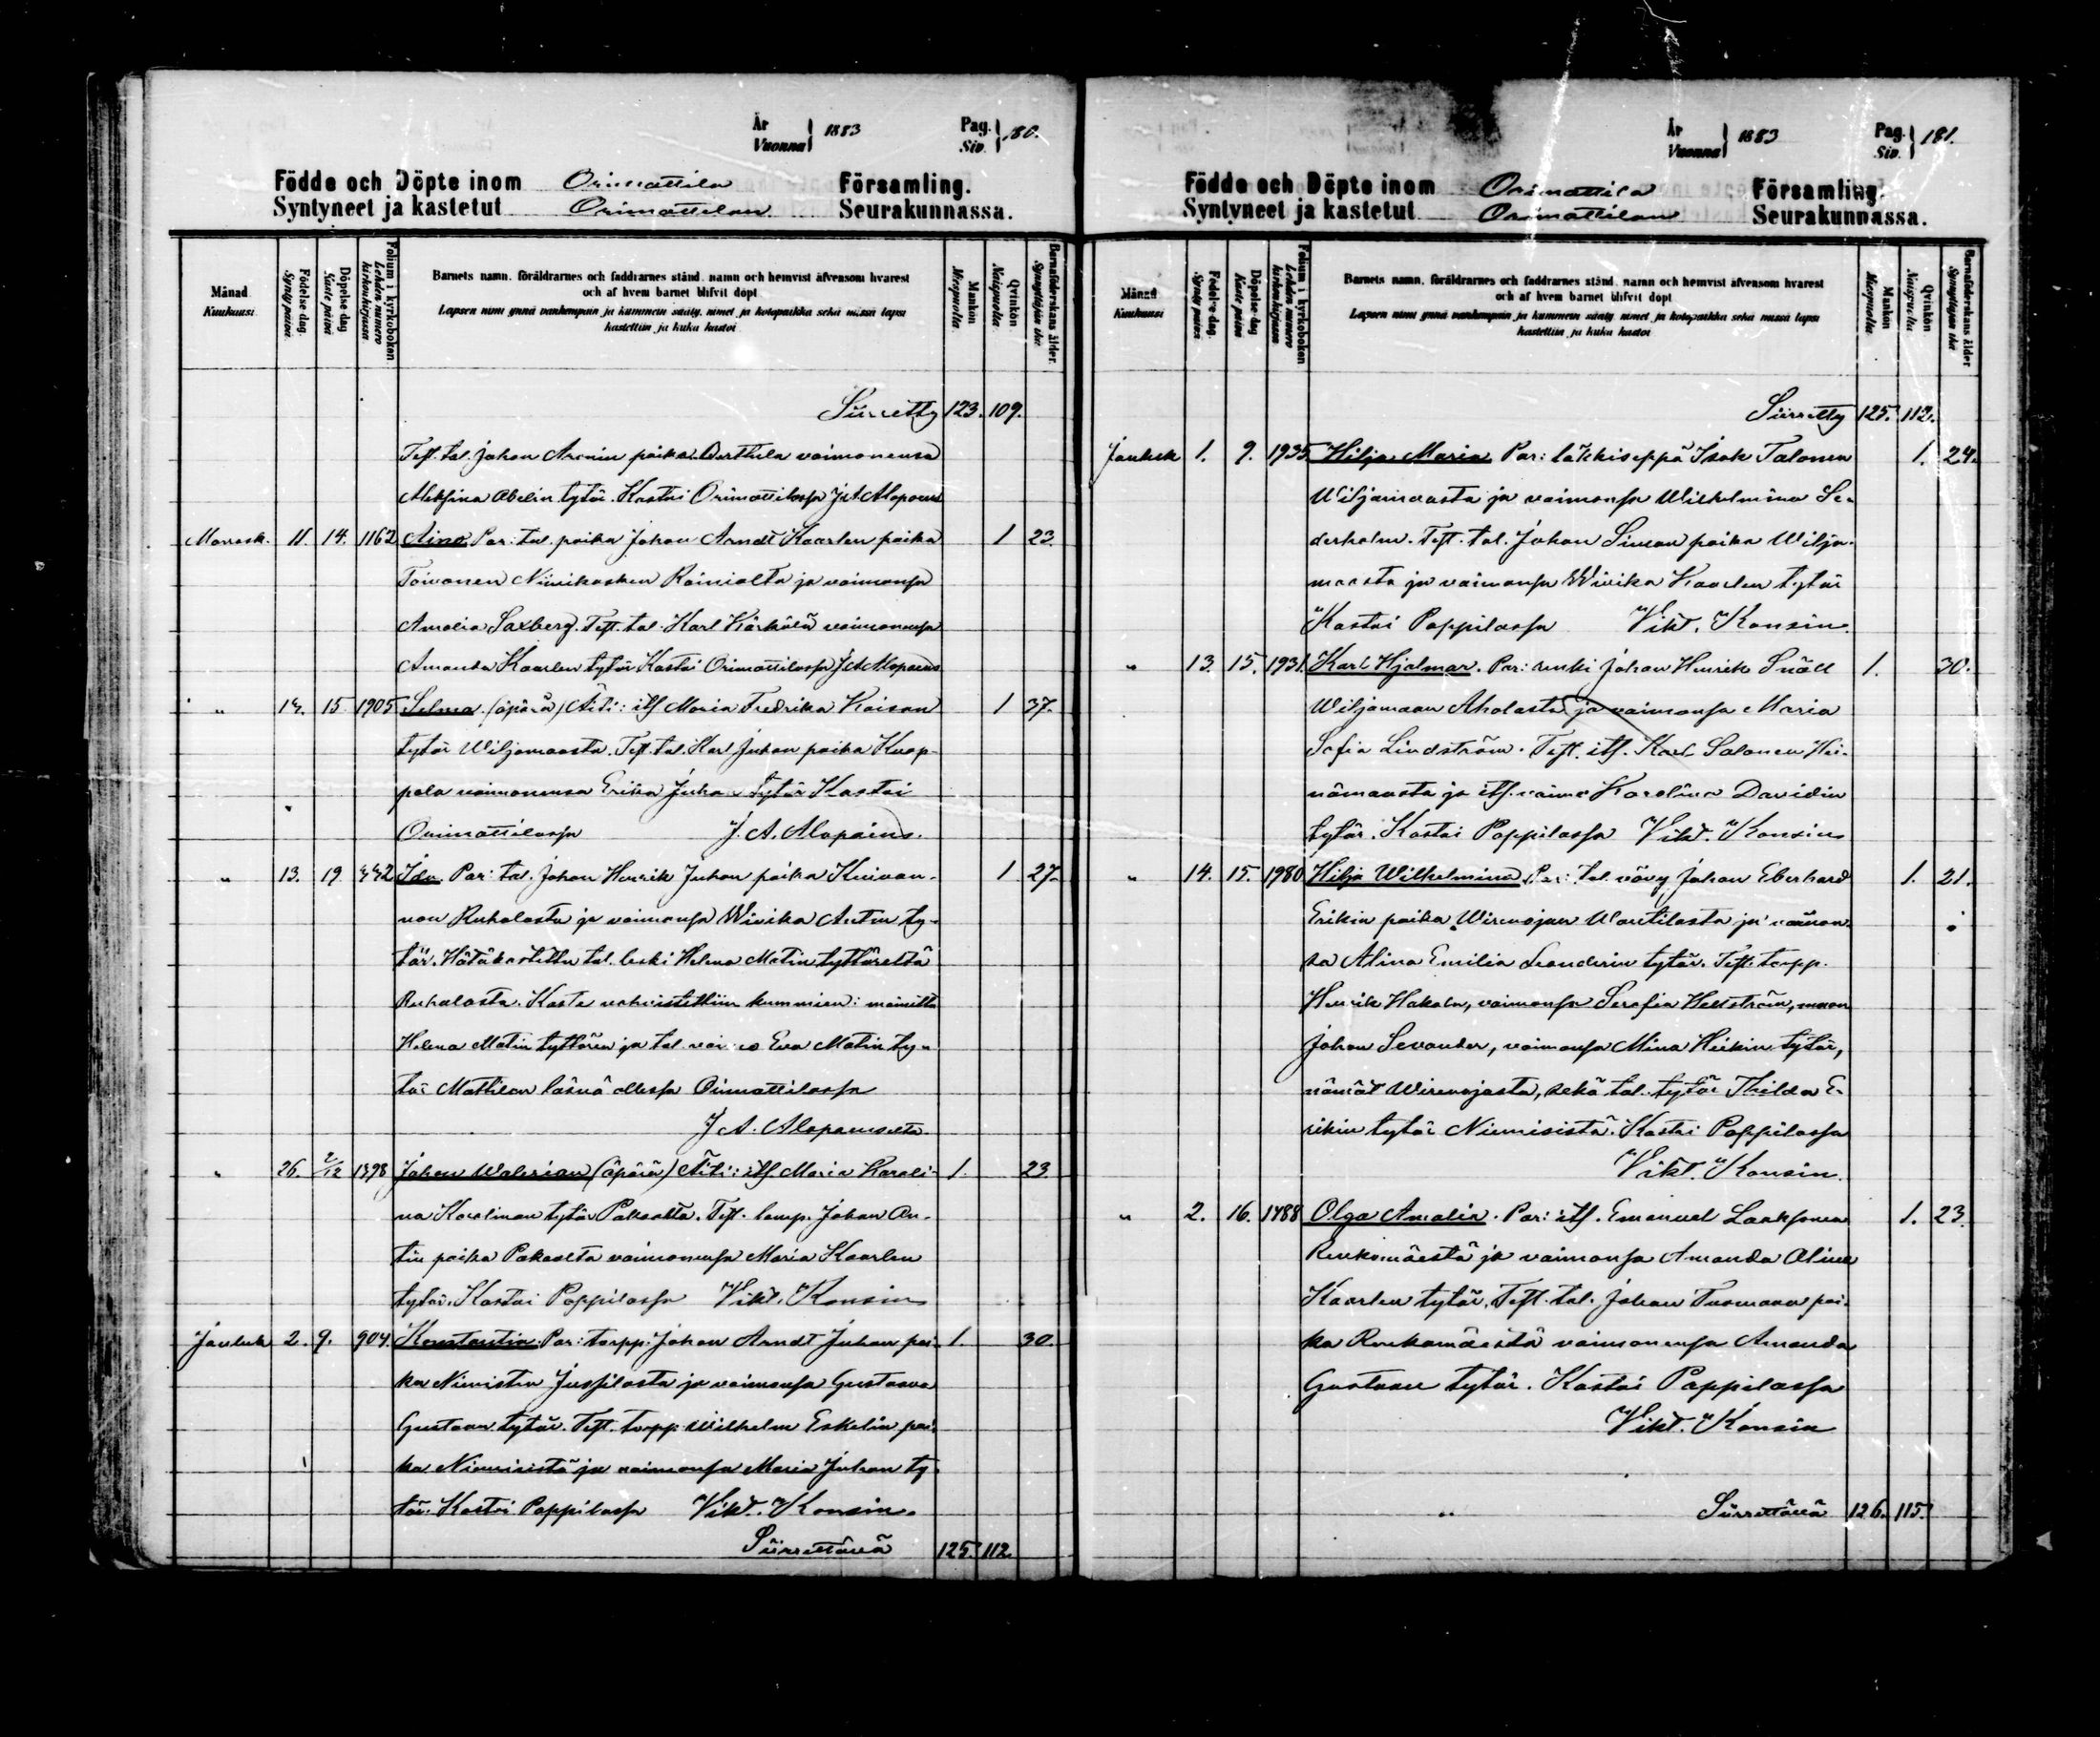 År
Vuonna 1883 Pag.
Siv. 180.
Födde och Döpte inom Orimattila Församling.
Syntyneet ja kastetut Orimattilan Seurakunnassa.
Månad
Kuukausi
Födelse dag.
Synty päivä
Döpelse dag
Kaste päivä
Folium i kyrkoboken
Lehden numero kirkonkirjassa
Barnets namn, föräldrarnes och faddrarnes stånd, namn och hemvist äfvensom hvarest
och af hvem barnet blifvit döpt
Lapsen nimi ynnä vanhempain ja kummein sääty, nimet ja kotopaikka sekä missä lapsi
kastettiin ja kuka kastoi
Mankön
Miespuolta
Qvinkön
Naispuolta
Barnaföderskans ålder.
Synnyttäjän ikä
Siirretty 123. 109.
Test. tal. Johan poika vaimonensa
Abelin tytär. Kastoi Orimattilassa J A Alopaeus
Marrask. 11. 14. 1162 Aino. Par: tal. poika Johan Arndt Kaarlen poika 1 23.
Toivonen Niinikosken ja vaimonsa
Amalia Saxberg. Test. tal. Karl Kärkölä vaimonensa
Amanda Kaarlen tytär Kastoi Orimattilassa J A Alopaeus
" 15 1905 Selma. (äpärä) Äiti: its Maria Fredrika Kaisan 1 37.
tytär Wiljamaasta. Test. tal. Karl Juhan poika
vaimonensa Erika Juhan tytär Kastoi
Orimattilassa J. A. Alopaeus.
" 13. 19. 442 Ida. Par: tal. Johan Henrik Juhan poika 1 27.
ja vaimonsa Wivika Antin ty-
tär. Hätäkastettu tal. leski Helena Matin tyttäreltä
Kaste vahvistettiin kummien: mainittu
Helena Matin tyttären ja tal. vaimo Eva Matin ty-
tär Mattilan läsnä ollessa Orimattilassa
J A. Alopaeukselta.
" 26. 2/12 1398 Johan Walerian (äpärä) Äiti: its. Maria Karoli- 1. 23.
na tytär Pakaalta. Test. lamp. Johan An-
tin poika Pakaalta vaimonensa Maria Kaarlen
tytär. Kastoi Pappilassa Vikt. Konsin
Jouluk 2. 9. 904. Konstantin. Par: torpp. Johan Arndt Juhan poi- 1. 30.
ka Niemisten Jussilasta ja vaimonsa Gustaava
Gustaan tytär. Test. torpp Wilhelm Eskelin poi-
ka Niemisistä ja vaimonsa Maria Juhan ty-
tär. Kastoi Pappilassa Vikt. Konsin.
Siirrettävä 125. 112.
År
Vuonna 1883 Pag.
Siv. 181.
Födde och Döpte inom Orimattila Församling.
Syntyneet ja kastetut Orimattilan Seurakunnassa.
Månad
Kuukausi
Födelse dag.
Synty päivä
Döpelse dag.
Kaste päivä
Folium i kyrkoboken
Lehden numero kirkonkirjassa
Barnets namn, föräldrarnes och faddrarnes stånd, namn och hemvist äfvensom hvarest
och af hvem barnet blifvit döpt
Lapsen nimi ynnä vanhempain ja kummein sääty, nimet ja kotopaikka sekä missä lapsi
kastettiin ja kuka kastoi
Mankön
Miespuolta
Qvinkön
Naispuolta
Barnaföderskans ålder
Synnyttäjän ikä
Siirretty 125. 112.
Jouluk 1. 9. 1935 Hilja Maria Par: läkkiseppä Isak Talonen 1. 24.
Wiljamaasta ja vaimonsa Wilhelmina Se-
derholm. Test. tal. Johan Simon poika Wilja-
maasta ja vaimonsa Wivika Kaarlen tytär
Kastoi Pappilassa Vikt. Konsin.
" 13. 15. 1931. Karl Hjalmar. Par: renki Johan Henrik Snäll 1. 30.
Wiljamaan Aholasta ja vaimonsa Maria
Sofia Lindström. Test. its. Karl Salonen Hei-
nämaasta ja its. vaimo Karolina Davidin
tytär. Kastoi Pappilassa Vikt. Konsin
" 14. 15. 1980 Hilja Wilhelmina. Par: tal. vävy Johan Eberhard 1. 21.
Erikin poika Wirenojan ja vaimon-
sa Alina Emilia Leanderin tytär. Test. torpp.
Henrik Hakala, vaimonsa Serafia Hellström, muon
Johan Sevander, vaimonsa Mina Heikin tytär,
nämät Wirenojasta, sekä tal. tytär Thilda E-
rikin tytär Niemisistä. Kastoi Pappilassa
Vikt. Konsin.
" 2. 16. 1488 Olga Amalia. Par: its. Emanuel Laaksonen 1. 23.
Renkomäestä ja vaimonsa Amanda Alina
Kaarlen tytär. Test. tal. Johan Tuomaan poi-
ka Renkomäestä vaimonensa Amanda
Gustaan tytär. Kastoi Pappilassa
Vikt. Konsin
Siirrettävä 126. 115.